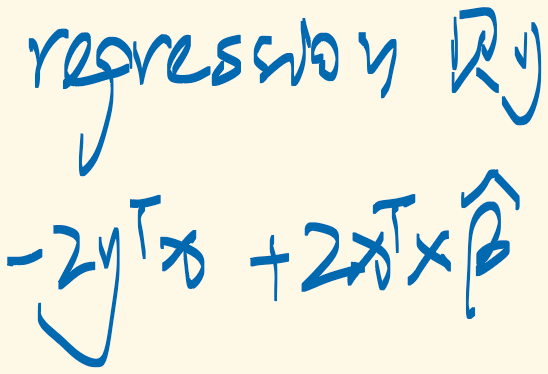 regression 则
-2yᵀx + 2xᵀxβ̂